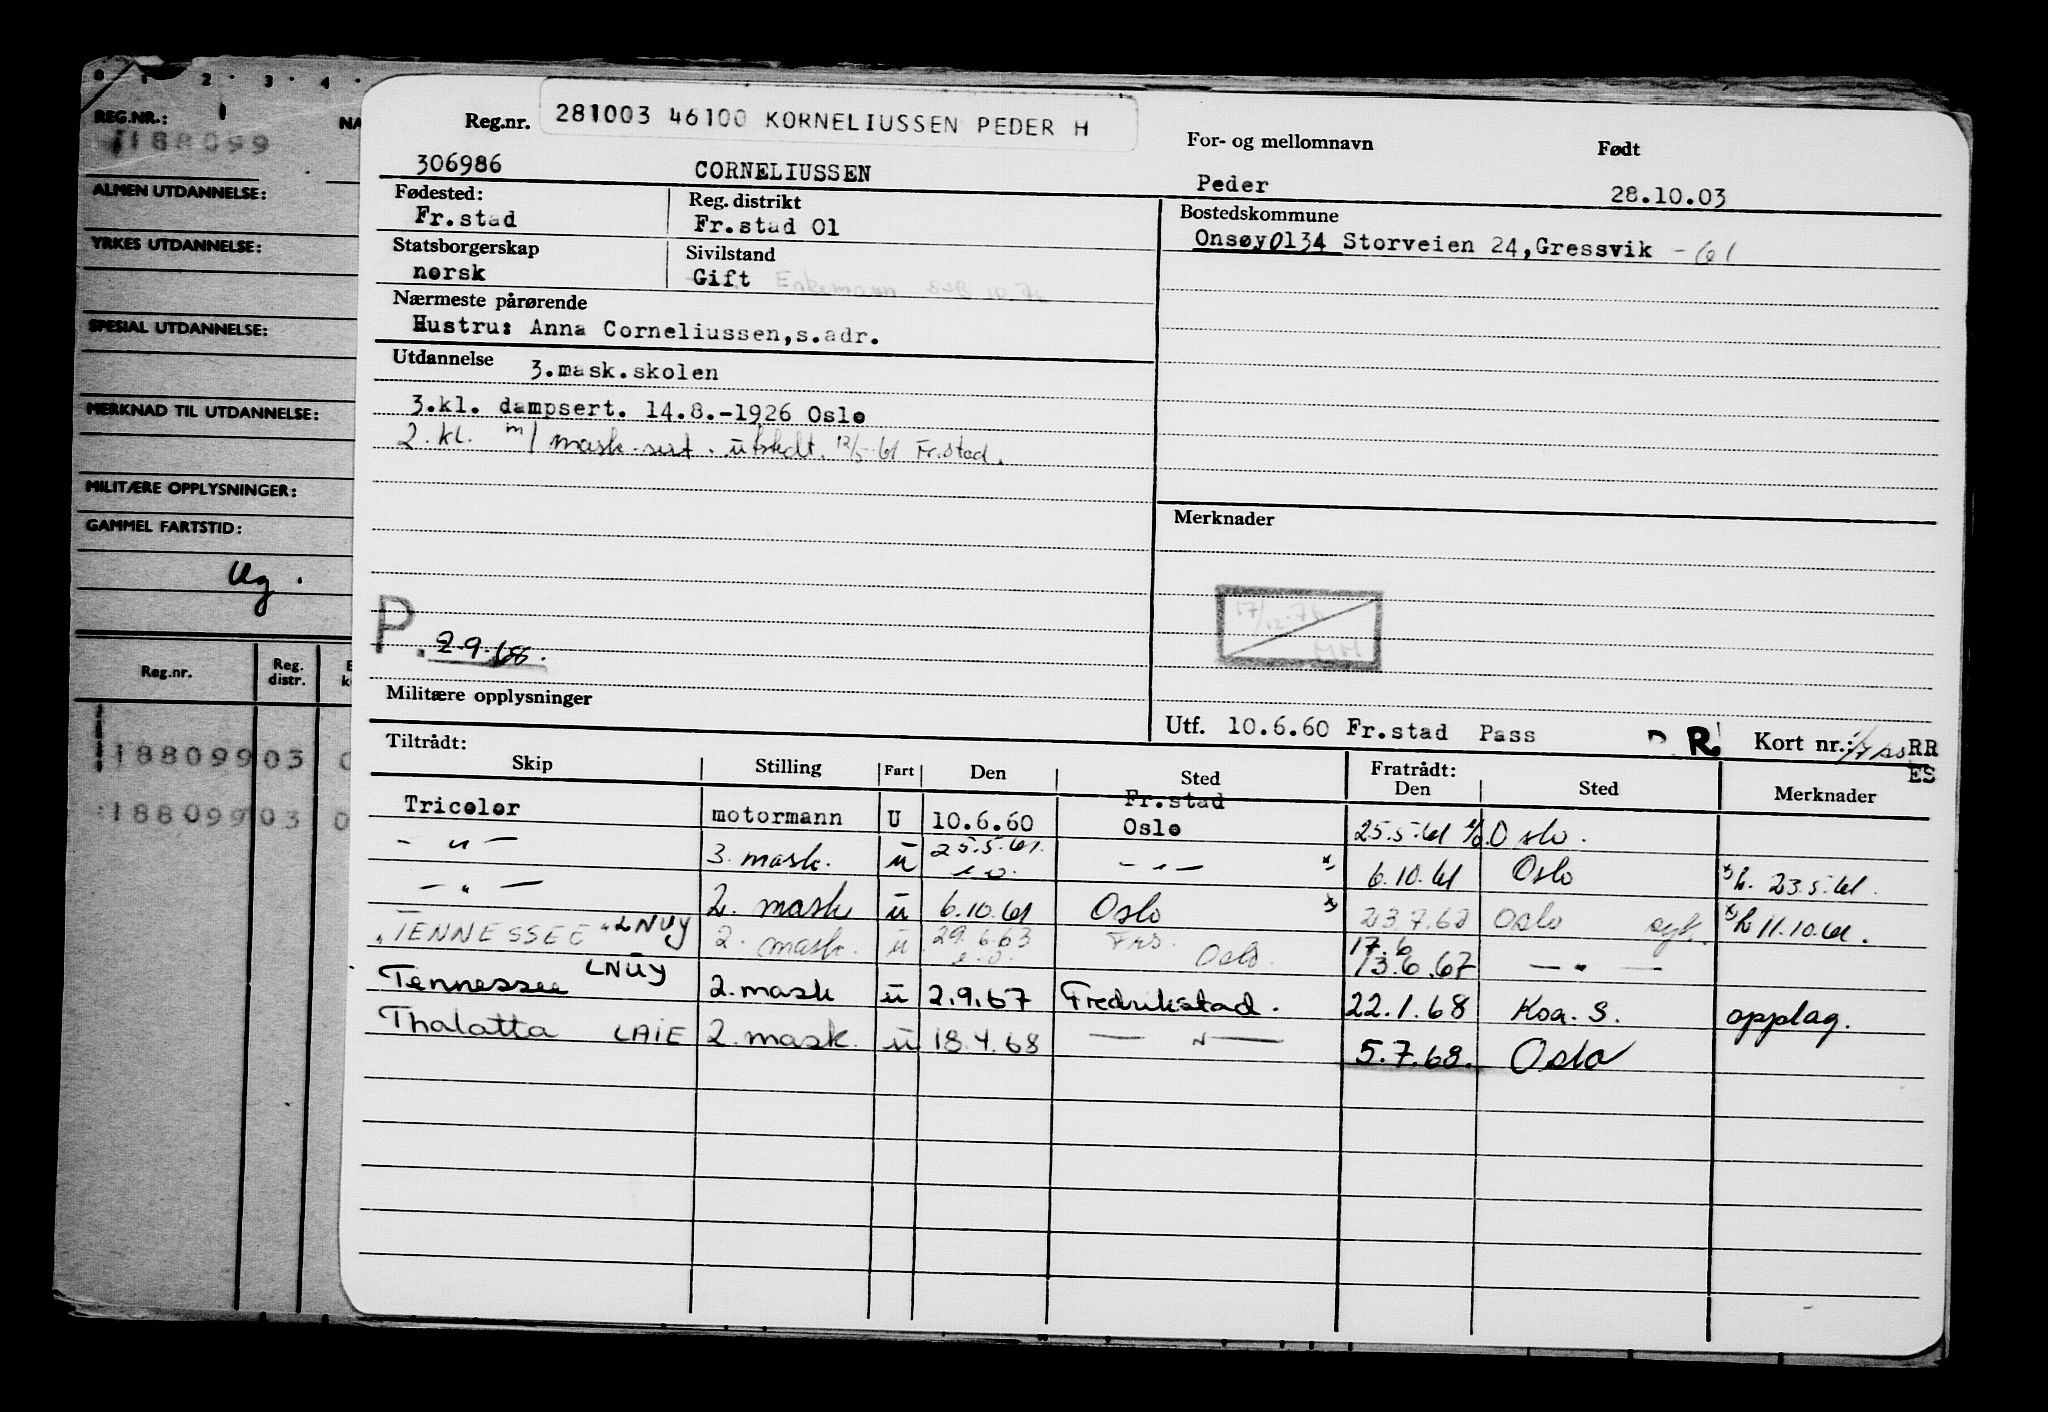 0 1 2 3 4
REG.NR.: NA
188099
ALMEN UTDANNELSE:
YRKES UTDANNELSE:
SPESIAL UTDANNELSE:
MERKNAD TIL UTDANNELSE:
MILITÆRE OPPLYSNINGER:
GAMMEL FARTSTID:
Ug.
Reg.nr. Reg. distr.
188099 03
188099 03
Reg.nr. 281003 46100 KORNELIUSSEN PEDER H For- og mellomnavn Født
306986 CORNELIUSSEN Peder 28.10.03
Fødested: Reg. distrikt Bostedskommune
Fr.stad Fr.stad 01 Onsøy0134 Storveien 24,Gressvik - 61
Statsborgerskap Sivilstand
norsk Gift Enkemann
Nærmeste pårørende
Hustru: Anna Corneliussen,s.adr.
Utdannelse 3.mask.skolen
3.kl. dampsert. 14.8.-1926 Oslo
2. kl. m/ mask.sert. utstedt. 12/5-61 Fr.stad.
Merknader
17/12-76
MH
P. 2.9.68.
Militære opplysninger
Utf. 10.6.60 Fr.stad Pass R Kort nr.: RR
ES
Tiltrådt: Fratrådt:
Skip Stilling Fart Den Sted Den Sted Merknader
Tricolor motormann U 10.6.60 Fr.stad Oslo 25.5.61 Oslo.
- " - 3. mask. u 25.5.61. - " - x) 6.10.61 Oslo x) h. 23.5.61.
- " - 2. mask u 6.10.61 Oslo x) 23.7.62 Oslo syk. x) h 11.10.61.
"TENNESSEE" LNUY 2. mask. u 29.6.63 Frs. Oslo. 17.6 13.6.67 - " -
Tennessee LNUY 2. mask u 2.9.67 Fredrikstad. 22.1.68 Koa. S. opplag.
Thalatta LAIE 2. mask. u 18.4.68 - " - 5.7.68. Oslo